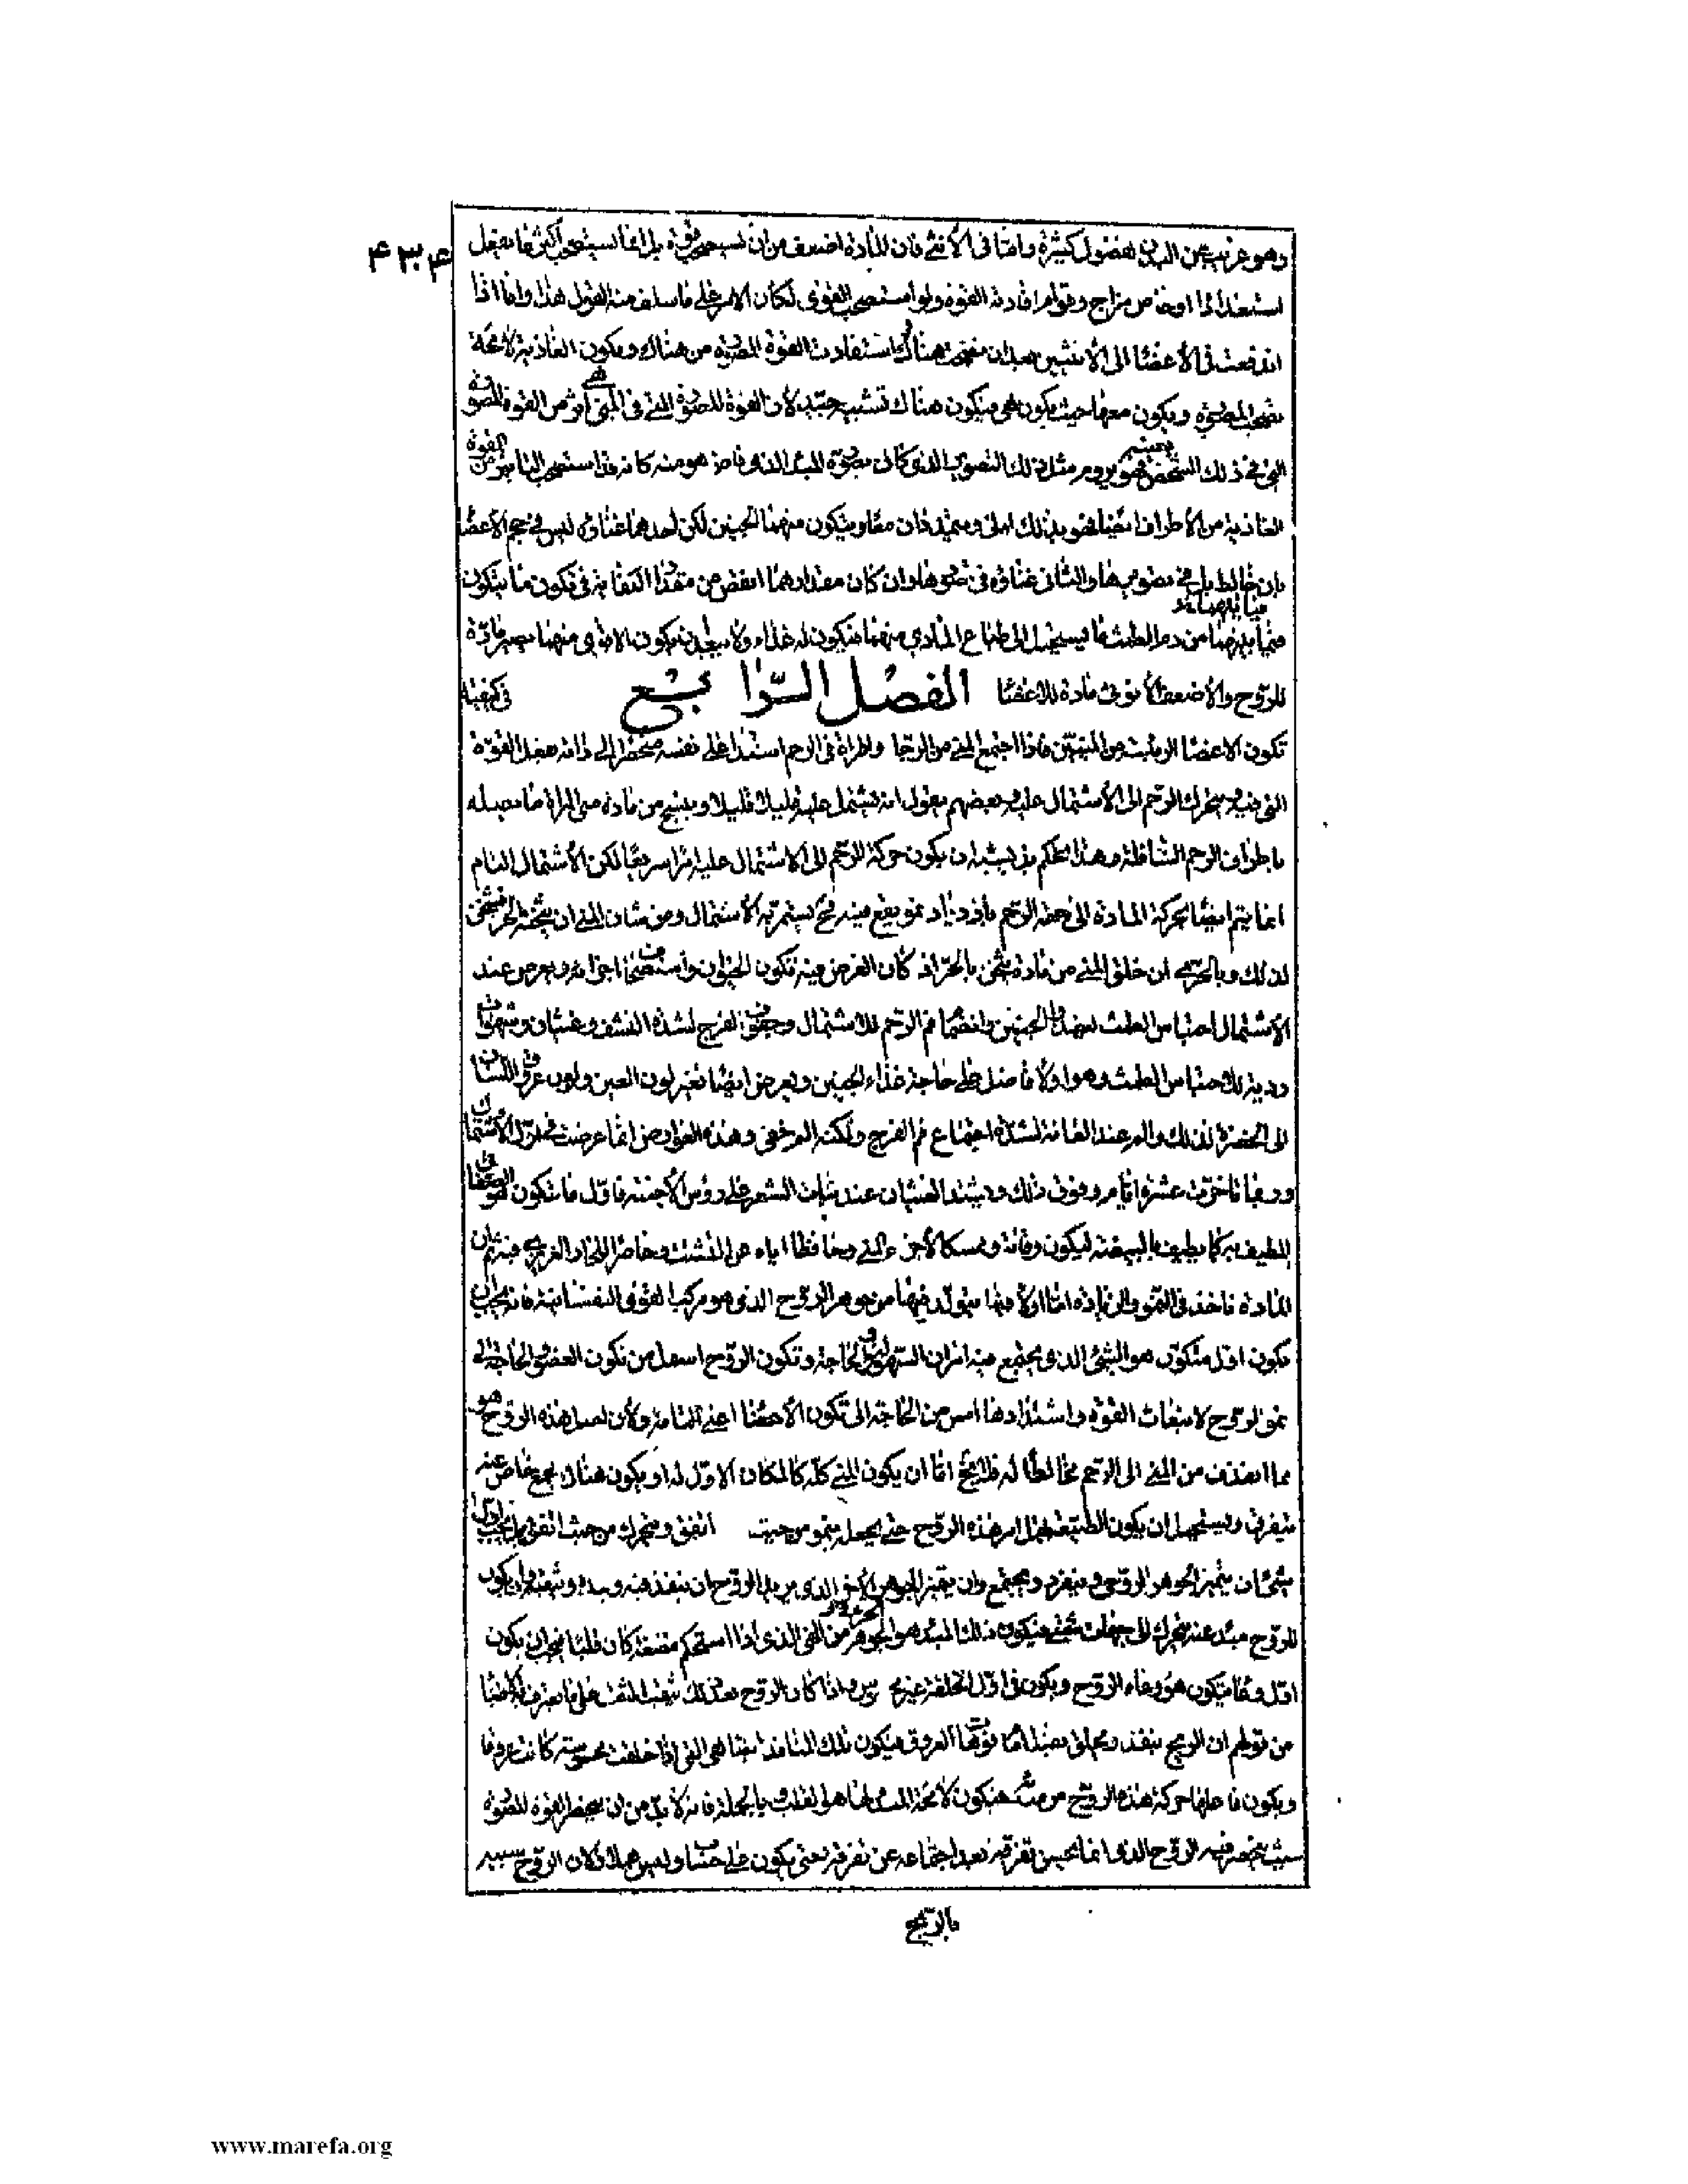 ۴۳۴
وهو غريب عن البدن بفضول كثيرة واما فى الأنثى فان المادة اضعف من ان تستصحب قوة بل انما تستصحب اكثر ما يفعل
استعدادا او خاص مزاج وقوام افادته القوة ولو استصحب القوى لكان الامر على ما سلف منه القول هذا واما اذا
اندفعت فى الأعضا الى الأنثيين بعد ان هناك استفادت القوة المصورة من هناك ويكون الغاذية لائحة
ويكون معها حيث يكون هى فيكون هناك تشبه جيد لأن القوة المصورة التى فى المنى هى من القوة المصورة
التى فى ذلك الشخص بعينه يروم مثل ذلك التصوير الذى كان مصورة المبدا الذى فاض هو منه كانه قد استصحب التاثير من القوة
الغاذية من الأطراف ايضا فهو بذلك ويكون منهما الجنين لكن احدهما غناؤه ليس فى حجم الأعضا
بان خالط بل فى تصويرها والثانى غناؤه فى وان كان مقدارهما انقص من مقدار الكفاية فى تكون ما يتكون
من دم الطمث ما يستحيل الى طباع المنى منهما فيكون له غذاء ولا يبعد ان يكون الاقوى منهما يصير مادة
للروح والأضعف الأنوثى مادة للاعضا الفصل الرابع فى كيفية
تكون الاعضا الرئيسة من المنيين فاذا اجتمع المنى من الرجل والمرأة فى الرحم استدار على نفسه منحصرا الى ذاته بفعل القوة
التى فيه ويتحرك الرحم الى الأشتمال عليه وبعضهم يقول انه تشتمل عليه قليلا قليلا ويتبع من مادة منى المراة ما يصله
باطراف الرحم السافلة وهذا تحكم بل يشبه ان يكون حركة الرحم الى الاشتمال عليه امرا سريعا لكن الأشتمال التام
انما يتم ايضا بحركة المادة الى جهة الرحم بازدياد نمو يقع فيه فح يستمر به الأشتمال ومن شان المنى ان يثخنه الحر فيثخن
لذلك وبالحرى ان خلق المنى من مادة تثخن بالحر اذ كان الغرض فيه تكون الحيوان واستحصاف اجزائه ويعرض عند
الأشتمال احتباس الطمث لغذاء الجنين وانضمام فم الرحم للاشتمال وجفوف الفرج لشدة النشف وغثيان وشهوات
ردية لاحتباس الطمث وهو اولا فاضل على حاجة غذاء الجنين ويعرض ايضا تغير لون العين ولون عروق اللسان
الى الخضرة لذلك والم عند العانة لشدة اجتماع فم الفرج ولكنه الم خفى وهذه العوارض انما عرضت فى اول الأشتمال
وربما تاخرت عشرة ايام وفوق ذلك ويشتد الغثيان عند نبات الشعر على رؤس الأجنة فاول ما يتكون هو الصفاق
المطيف به كما يطيف بالبيضة ليكون وقاية وممسكا لأجزاء المنى وحافظا اياه عن التشتت وحاصرا للحار الغريزى فيه ثم ان
المادة تاخذ فى النمو والزيادة اما اولا فيما يتولد فيها من جوهر الروح الذى هو مركب القوى النفسانية فانه يجب ان
تكون اول متكون هو الشئ الذى يجتمع فيه امران السهولة والحاجة وتكون الروح اسهل من تكون العضو والحاجة الى
نمو الروح لانبعاث القوة واشتدادها امس من الحاجة الى تكون الأعضا اعنى التامة ولأن اصل هذه الروح هو
مما انقذف من المنى الى الرحم مخالطا له فلا يخ اما ان يكون المنى كله كالمكان الاول له او يكون هناك مجمع خاص عنه
يتفرق ويستحيل ان يكون الطبيعة تهمل امر هذه الروح حتى يجعل ينمو من حيث اتفق ويتحرك من حيث اتفق بل يجب اول
شئ ان يتميز الجوهر الروحى وينفرد ويجتمع وان يقيد الجوهر الأخر الذى يريد الروح ان ينفذ فيه ويكون
للروح مبدا عنه يتحرك الى جهات شتى فيكون ذلك المبدا هو الجوهر من المنى الذى اذا استحكم مضغة كان قلبا فيجب ان يكون
اول وعاء يتكون هو وعاء الروح ويكون فى اول الخلقة غير محسوس واذا كان الروح بعد ذلك على ما يعترف الاطبا
من قولهم ان الروح ينفذ ويخلق بعدا ما فوهات العروق فيكون تلك المنافذ ايضا هى التى اذا خلقت محسوسة كانت عروقا
ويكون فاعلها حركة هذه الروح من فيكون لا محة المبدا انما هو القلب وبالجملة فانه لابد من ان يحفظ القوة المصورة
الروح الذى انما يحسن تفرقه بعد اجتماعه عن تفرقه يعنى يكون على حساب وليس مهلا فكان الروح
بالريح
www.marefa.org